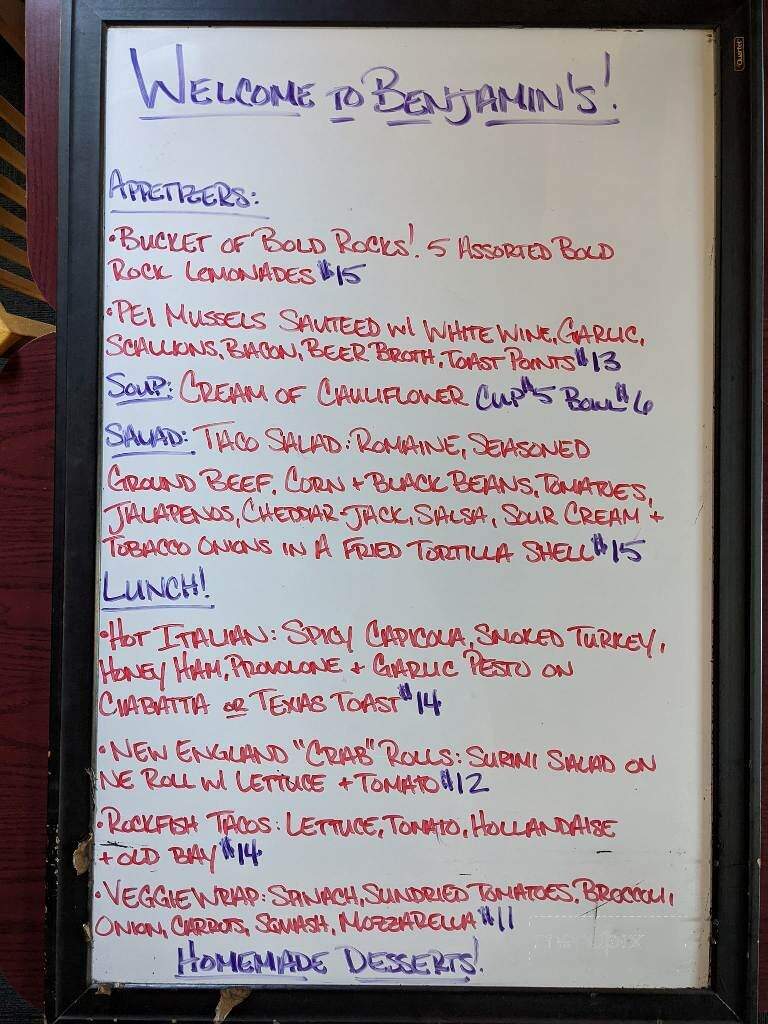 Quartet
WELCOME TO BENJAMIN'S!
APPETIZERS:
•BUCKET OF BOLD ROCKS! 5 ASSORTED BOLD
ROCK LEMONADES $15
•PEI MUSSELS SAUTEED W/ WHITE WINE, GARLIC,
SCALLIONS, BACON, BEER BROTH, TOAST POINTS $13
SOUP: CREAM OF CAULIFLOWER CUP $5 BOWL $6
SALAD: TACO SALAD: ROMAINE, SEASONED
GROUND BEEF, CORN + BLACK BEANS, TOMATOES,
JALAPENOS, CHEDDAR-JACK, SALSA, SOUR CREAM +
TOBACCO ONIONS IN A FRIED TORTILLA SHELL $15
LUNCH!
•HOT ITALIAN: SPICY CAPICOLA, SMOKED TURKEY,
HONEY HAM, PROVOLONE + GARLIC PESTO ON
CIABATTA OR TEXAS TOAST $14
•NEW ENGLAND "CRAB" ROLLS: SURIMI SALAD ON
NE ROLL W/ LETTUCE + TOMATO $12
•ROCKFISH TACOS: LETTUCE, TOMATO, HOLLANDAISE
+ OLD BAY $14
•VEGGIE WRAP: SPINACH, SUNDRIED TOMATOES, BROCCOLI,
ONION, CARROTS, SQUASH, MOZZARELLA $11
menupix
HOMEMADE DESSERTS!